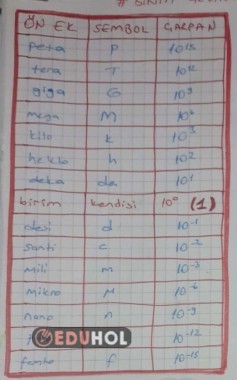 ÖN EK SEMBOL ÇARPAN
peta P 10¹⁵
tera T 10¹²
giga G 10⁹
mega M 10⁶
kilo k 10³
hekto h 10²
deka da 10¹
birim kendisi 10⁰ (1)
desi d 10⁻¹
santi c 10⁻²
mili m 10⁻³
mikro μ 10⁻⁶
nano n 10⁻⁹
EDUHOL 10⁻¹²
femto f 10⁻¹⁵